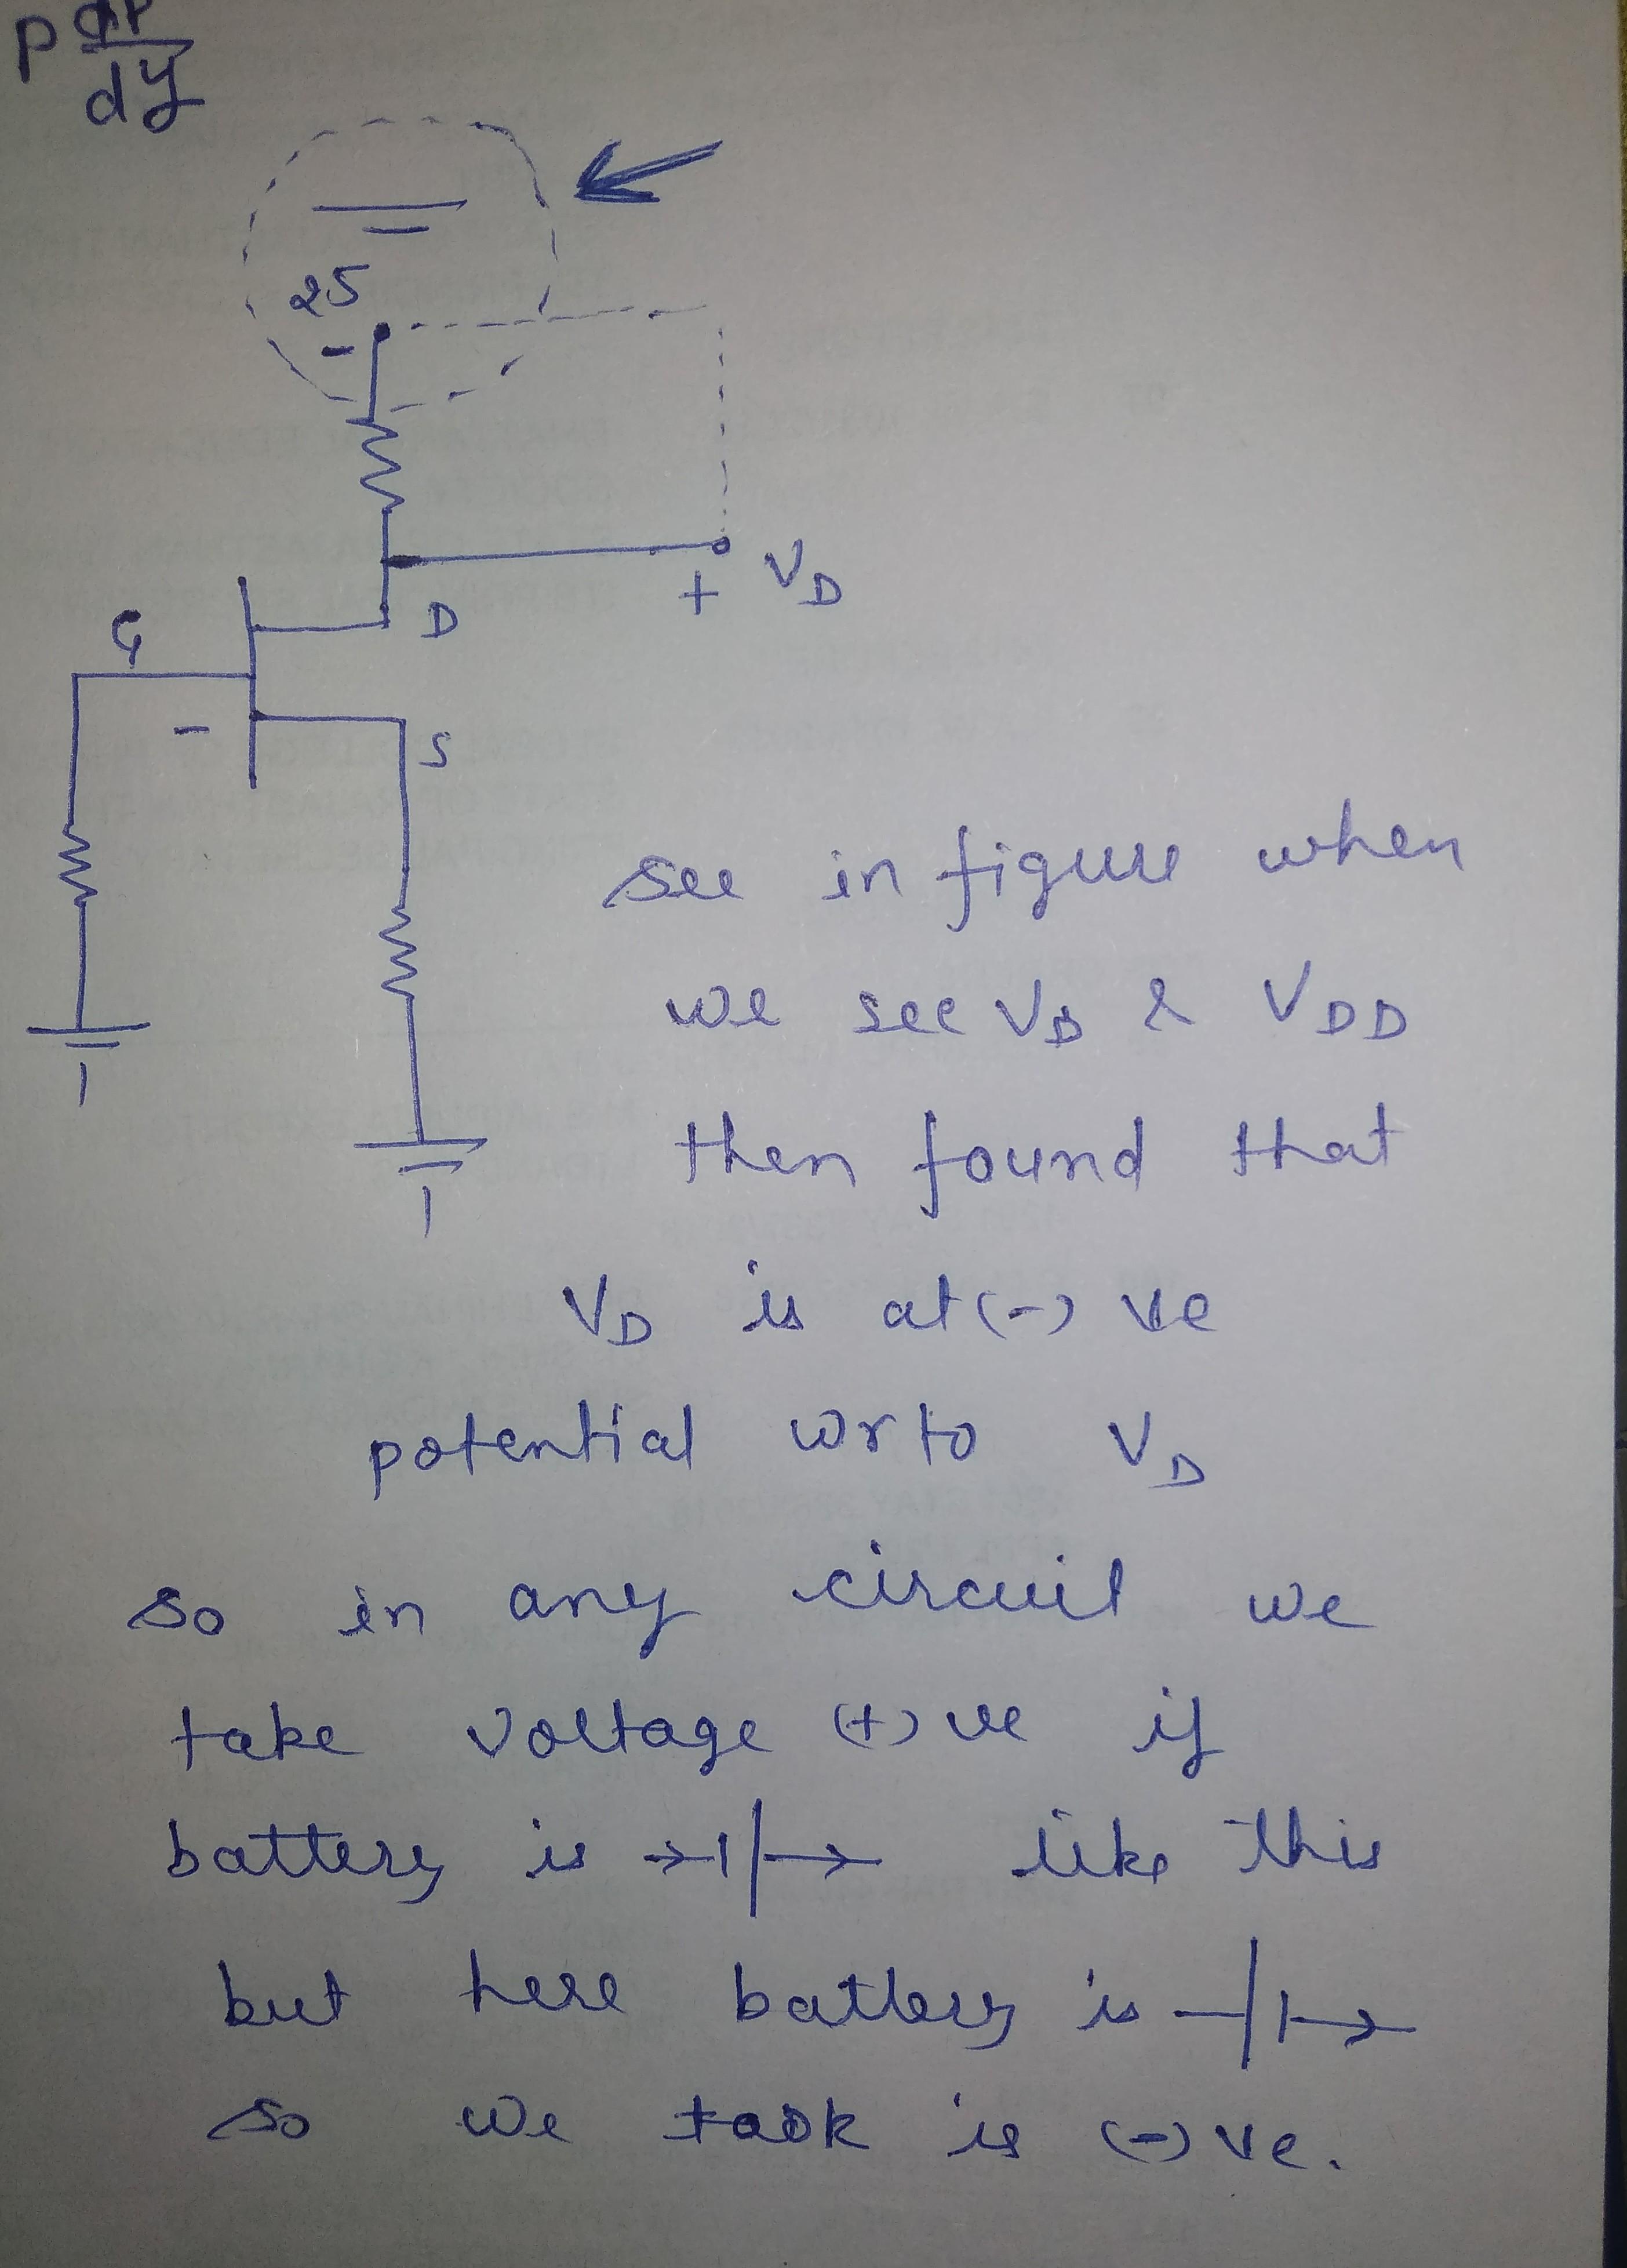 p dp
dy
25
-
+ VD
D
G
-
S
see in figure when
we see VD & VDD
then found that
VD is at (-) ve
potential wrto VD
so in any circuit we
take voltage (+) ve if
battery is like this
but here battery is
so we task is (-) ve.